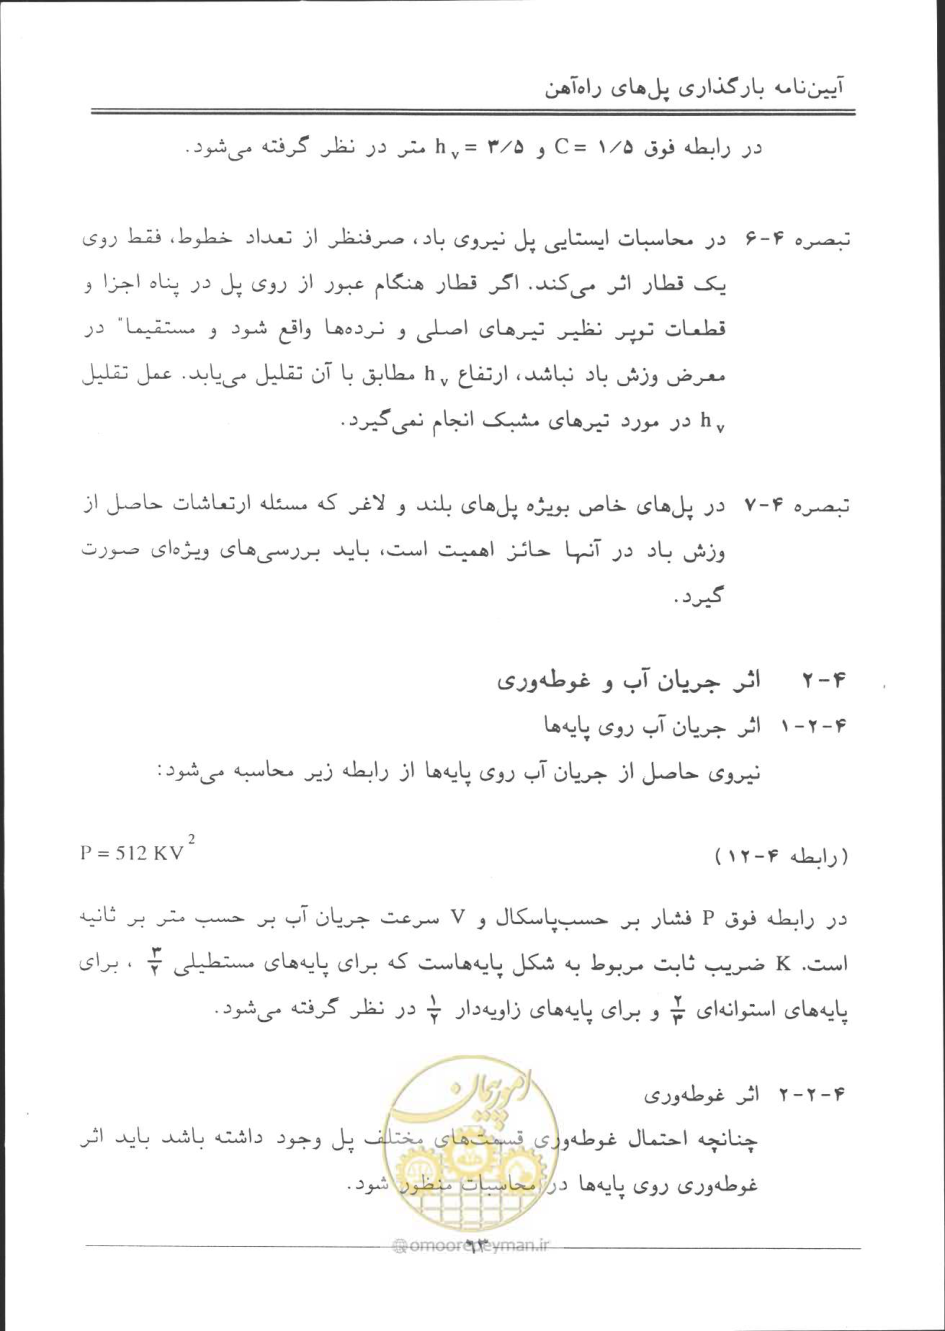 آیین‌نامه بارگذاری پل‌های راه‌آهن
در رابطه فوق C = ۱/۵ و h v = ۳/۵ متر در نظر گرفته می‌شود.
تبصره ۴-۶ در محاسبات ایستایی پل نیروی باد، صرفنظر از تعداد خطوط، فقط روی
یک قطار اثر می‌کند. اگر قطار هنگام عبور از روی پل در پناه اجزا و
قطعات توپر نظیر تیرهای اصلی و نرده‌ها واقع شود و مستقیما" در
معرض وزش باد نباشد، ارتفاع h v مطابق با آن تقلیل می‌یابد. عمل تقلیل
h v در مورد تیرهای مشبک انجام نمی‌گیرد.
تبصره ۴-۷ در پل‌های خاص بویژه پل‌های بلند و لاغر که مسئله ارتعاشات حاصل از
وزش باد در آنها حائز اهمیت است، باید بررسی‌های ویژه‌ای صورت
گیرد.
۴-۲ اثر جریان آب و غوطه‌وری
۴-۲-۱ اثر جریان آب روی پایه‌ها
نیروی حاصل از جریان آب روی پایه‌ها از رابطه زیر محاسبه می‌شود:
(رابطه ۴-۱۲) P = 512 KV²
در رابطه فوق P فشار بر حسب‌پاسکال و V سرعت جریان آب بر حسب متر بر ثانیه
است. K ضریب ثابت مربوط به شکل پایه‌هاست که برای پایه‌های مستطیلی ۳/۲ ، برای
پایه‌های استوانه‌ای ۲/۳ و برای پایه‌های زاویه‌دار ۱/۲ در نظر گرفته می‌شود.
۴-۲-۲ اثر غوطه‌وری
چنانچه احتمال غوطه‌وری قسمت‌های مختلف پل وجود داشته باشد باید اثر
غوطه‌وری روی پایه‌ها در محاسبات منظور شود.
امور پیمان
۶۳
@omoorepeyman.ir